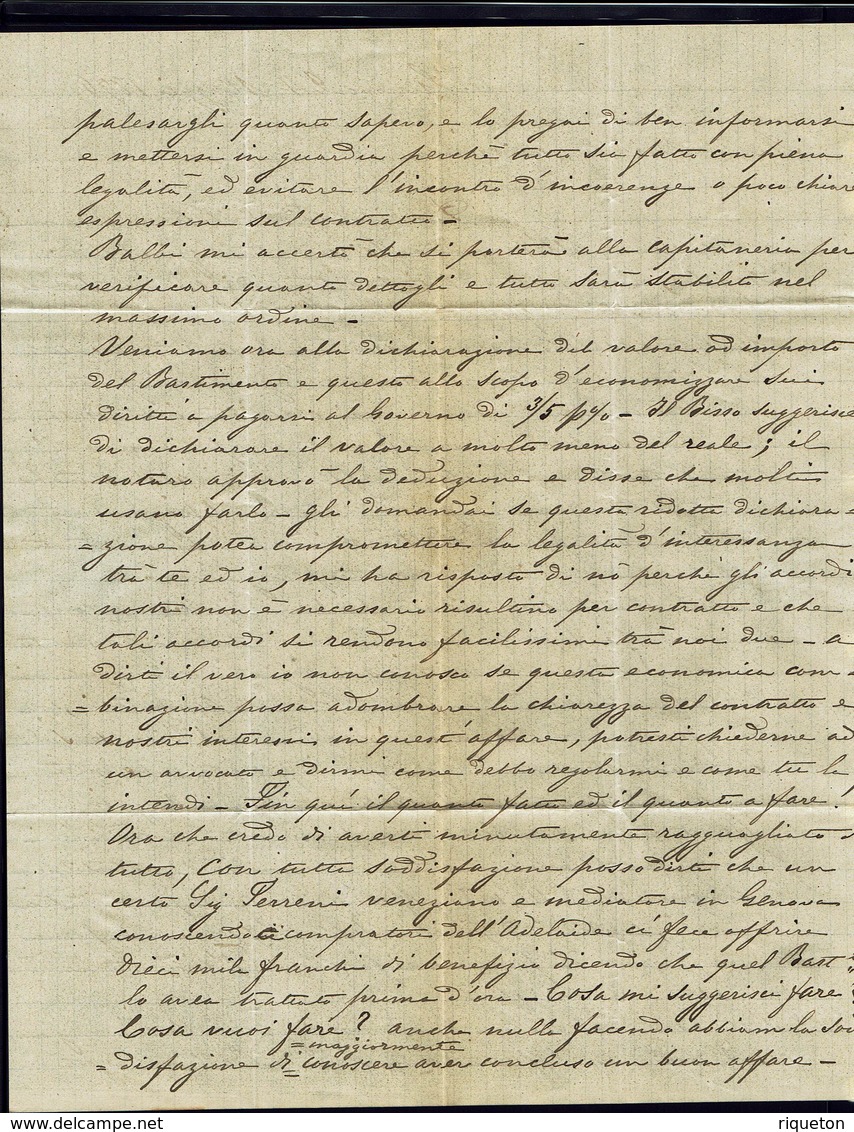 palesargli quanto sapevo, e lo pregai di ben informarsi
e mettersi in guardia perchè tutto sia fatto con piena
legalità, ed evitare l'incontro d'incoerenze o poco chiare
espressioni sul contratto -
Balbi mi accertò che si porterà alla capitaneria per
verificare quanto dettogli e tutto sarà stabilito nel
massimo ordine -
Veniamo ora alla dichiarazione del valore od importo
del Bastimento e questo allo scopo d'economizzare sui
diritti a pagarsi al Governo di 3/5 p% - Il Bisso suggerisce
di dichiarare il valore a molto meno del reale; il
notaro approvò la deduzione e disse che molti
usano farlo - gli domandai se questa ridotta dichiara =
= zione potea compromettere la legalità d'interessanza
trà te ed io, mi ha risposto di nò perchè gli accordi
nostri non è necessario risultino per contratto e che
tali accordi si rendono facilissimi trà noi due - a
dirti il vero io non conosco se questa economica com =
= binazione possa adombrare la chiarezza del contratto e
nostri interessi in quest'affare, potresti chiederne ad
un avvocato e dirmi come debbo regolarmi e come tu la
intendi - Fin quì il quanto fatto ed il quanto a fare!
Ora che credo di averti minutamente ragguagliato di
tutto, con tutta soddisfazione posso dirti che un
certo Sig Terreni veneziano e mediatore in Genova
conoscendoci compratori dell'Adelaide ci fece offrire
dieci mila franchi di benefizio dicendo che quel Bast
lo avea trattato prima d'ora - Cosa mi suggerisci fare?
Cosa vuoi fare? anche nulla facendo abbiam la sod
= maggiormente
= disfazione di conoscere aver concluso un buon affare -
www.delcampe.net
riqueton